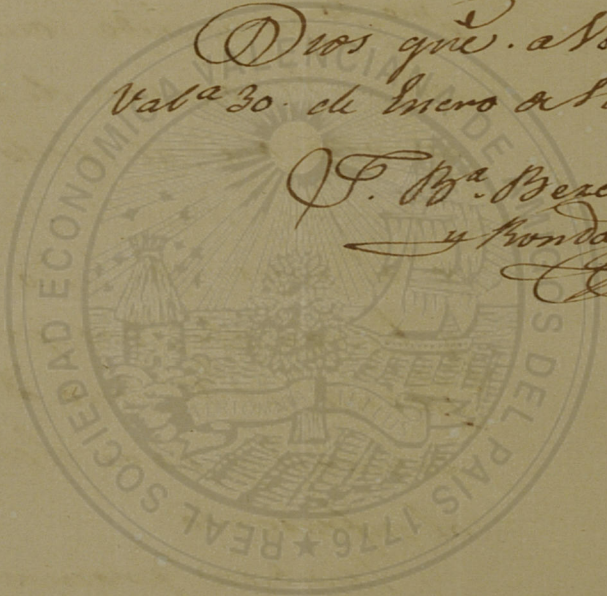 Dios gue. a V
Val.ª 30. de Enero de 1
F. Bª. Bere
y Ronda
REAL SOCIEDAD ECONOMICA VALENCIANA DE COS DEL PAIS 1776